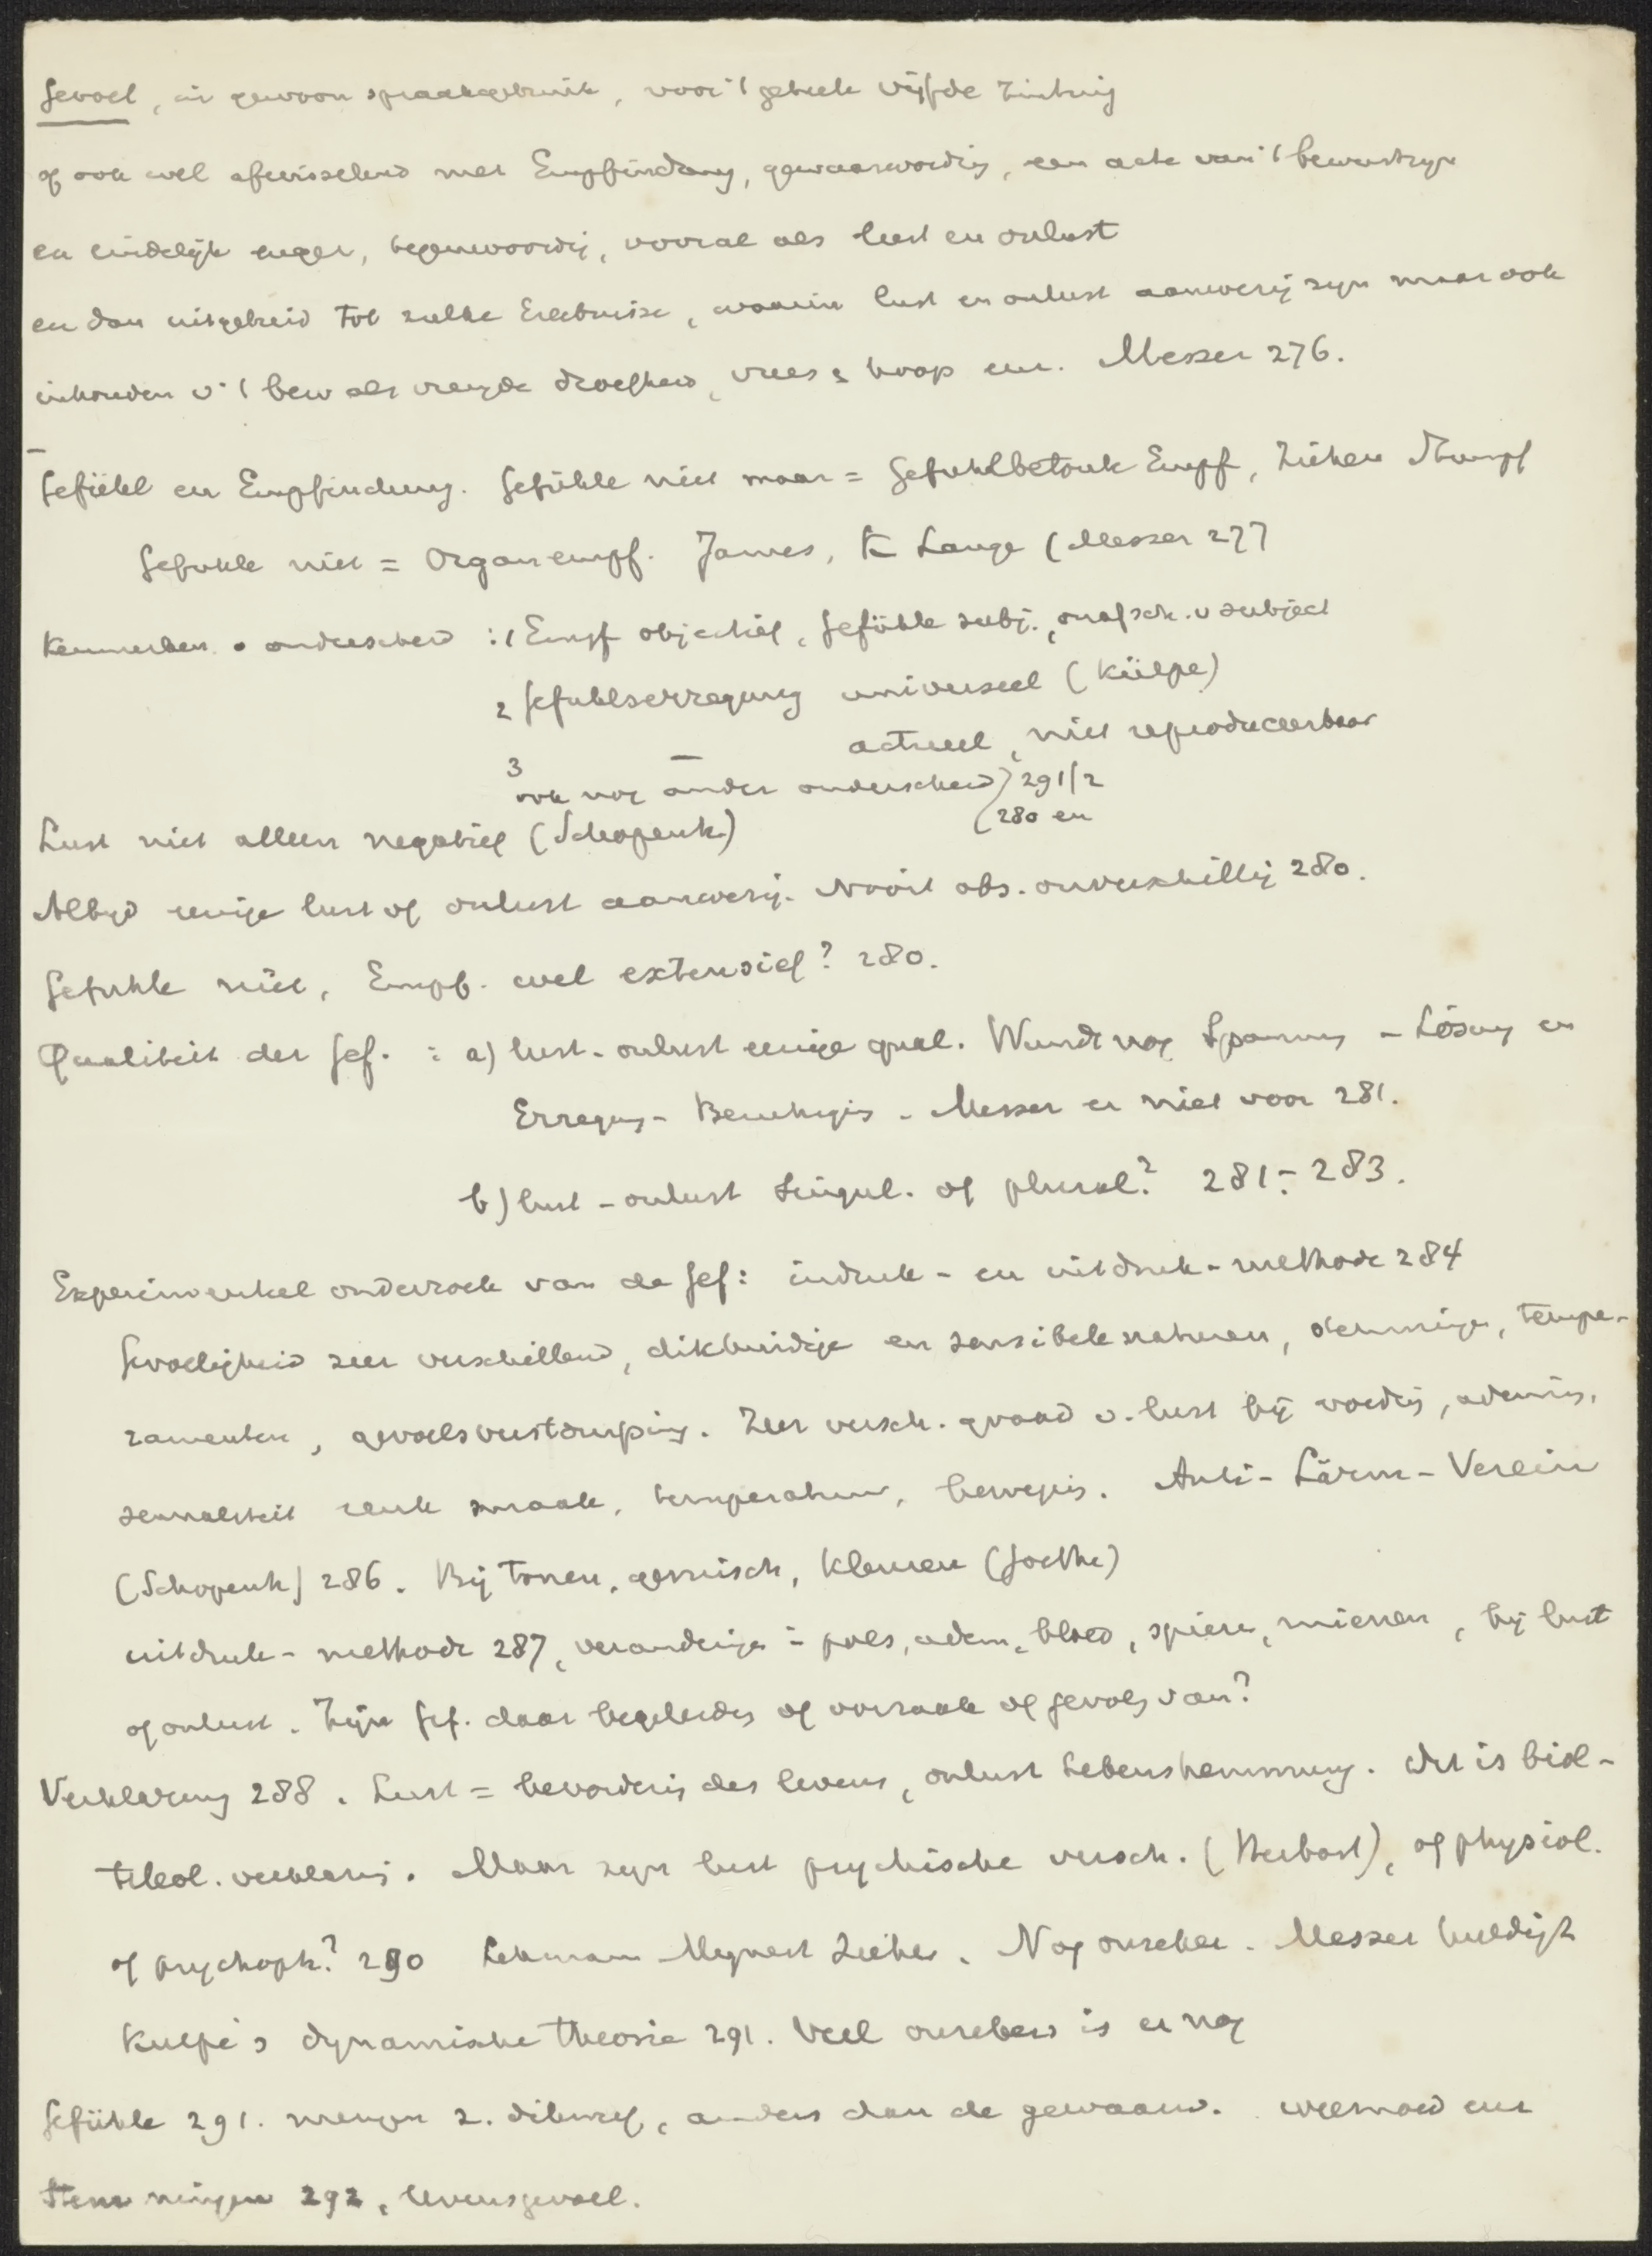 Gevoel, in gewoon spraakgebruik, voor 't geheele vijfde zintuig
of ook wel afwisselend met Empfindung, gewaarwording, een acte van 't bewustzijn
en eindelijk enger, tegenwoordig, vooral als lust en onlust
en dan uitgebreid tot zulke Erlebnisse, waarin lust en onlust aanwezig zijn maar ook
inhouden v 't bew als vreugde droefheid, vrees & hoop enz. Messer 276.
Gefühl en Empfindung. Gefühle niet maar = Gefuhlbetonte Empf, Ziehen Stumpf
Gefuhle niet = Organempf. James, K Lange (Messer 277
Kenmerken onderscheid : 1 Empf objectief, Gefühle subj., onafsch. v subject
2 Gefuhlserregung universeel (Külpe)
3 — actueel, niet reproduceerbaar
ook nog ander onderscheid) 291/2
(280 en
Lust niet alleen negatief (Schopenh.)
Altijd eenige lust of onlust aanwezig. Nooit abs. onverschillig 280.
Gefuhle niet, Empf. wel extensief? 280.
Qualiteit der Gef. : a) lust-onlust eenige qual. Wundt nog Spannung - Lösung en
Erregung - Beruhigung - Messer er niet voor 281.
b) lust-onlust singul. of plural? 281-283.
Experimenteel onderzoek van de Gef: indruk- en uitdruk-methode 284
Gevoeligheid zeer verschillend, dikhuidige en sensibele naturen, stemmingen, tempe-
ramenten, gevoelsverstomping. Zeer versch. graad v. lust bij voeding, ademing,
sexualiteit reuk smaak, temperatuur, beweging. Anti-Lärm-Verein
(Schopenh) 286. Bij tonen, geruisch, kleuren (Goethe)
uitdruk-methode 287, veranderingen in pols, adem, bloed, spieren, mienen, bij lust
of onlust. Zijn Gef. daar begeleiders of oorzaak of gevolg van?
Verklaring 288. Lust = bevordering des levens, onlust Lebenshemmung. Dit is biol-
teleol. verklaring. Maar zijn lust psychische versch. (Herbart), of physiol.
of psychoph.? 290 Lehmann Meynert Ziehen. Nog onzeker. Messer huldigt
Kulpe's dynamische theorie 291. Veel onzekers is er nog
Gefühle 291. mengen z. dikwijls, anders dan de gewaarw. weemoed enz
Stemmingen 292, levensgevoel.